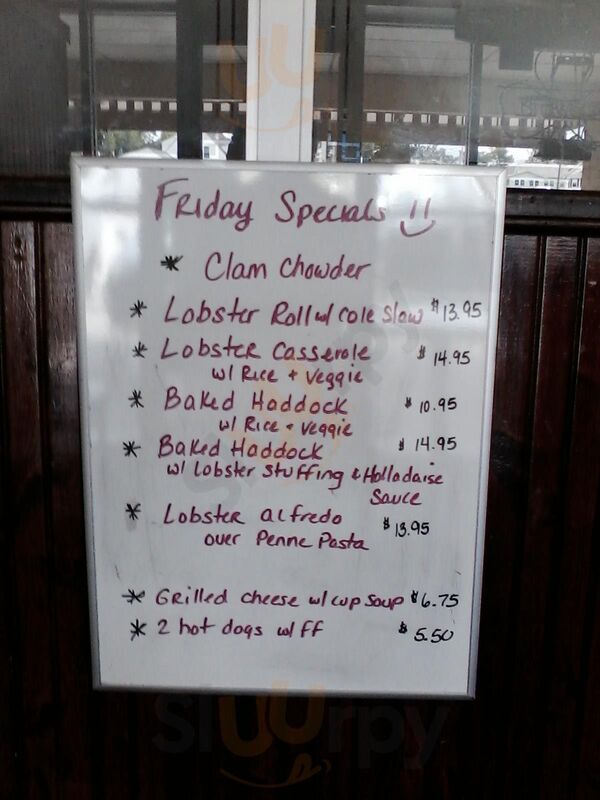 Friday Specials !!
* Clam Chowder
* Lobster Roll w/ cole slaw $13.95
* Lobster Casserole $14.95
w/ Rice + Veggie
* Baked Haddock $10.95
w/ Rice + Veggie
* Baked Haddock $14.95
w/ Lobster Stuffing & Holladaise
Sauce
* Lobster alfredo $13.95
over Penne Pasta
* Grilled cheese w/ cup soup $6.75
* 2 hot dogs w/ FF $5.50
Sluurpy